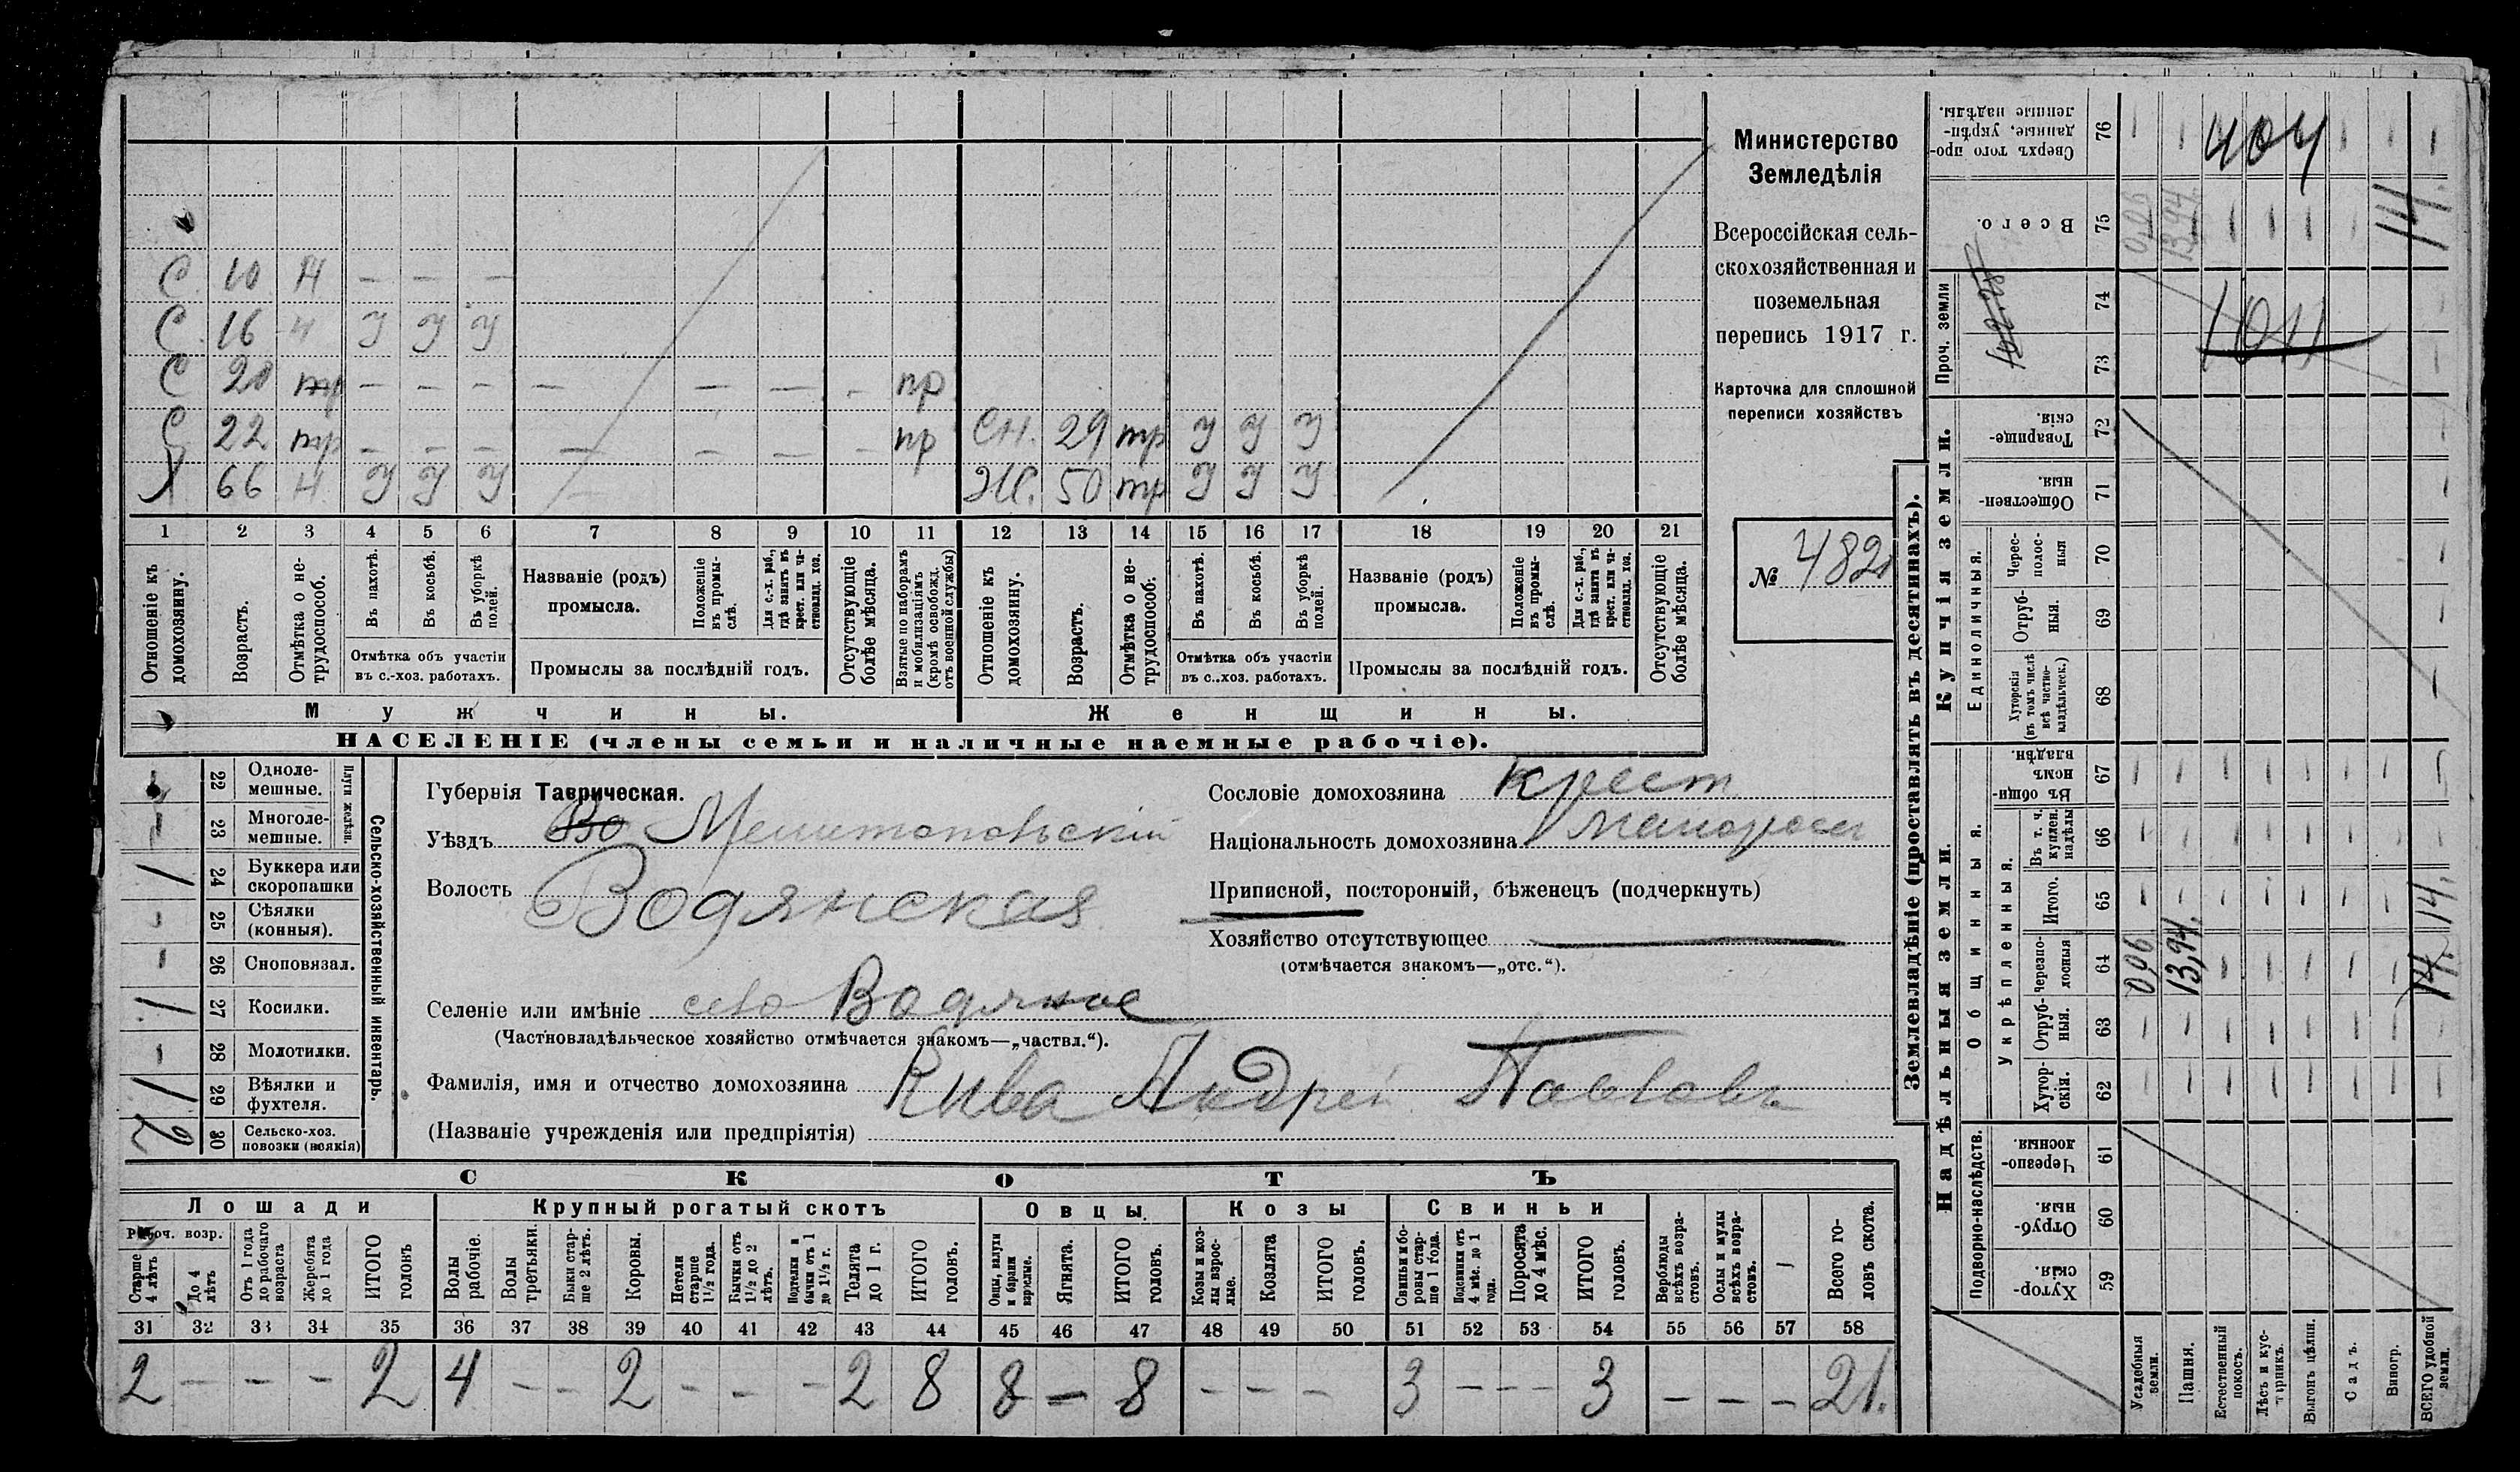 С 10 н — — —
С 16 н У У У
С 20 тр — — — — — — — пр
С 22 тр — — — — — — — пр СН. 29 тр У У У
Х 66 н У У У — Ж. 50 тр У У У
1 2 3 4 5 6 7 8 9 10 11 12 13 14 15 16 17 18 19 20 21
Отношеніе къ домохозяину.
Возрастъ.
Отмѣтка о не-трудоспособ.
Въ пахотѣ.
Въ косьбѣ.
Въ уборкѣ полей.
Отмѣтка объ участіи
въ с.-хоз. работахъ.
Названіе (родъ)
промысла.
Положеніе въ промы-слѣ.
Для с.-х. раб., гдѣ занятъ въ крест. или ча-стновлад. хоз.
Промыслы за послѣдній годъ.
Отсутствующіе болѣе мѣсяца.
Взятые по наборамъ и мобилизаціямъ (кромѣ освобожд. отъ военной службы)
Отношеніе къ домохозяину.
Возрастъ.
Отмѣтка о не-трудоспособ.
Въ пахотѣ.
Въ косьбѣ.
Въ уборкѣ полей.
Отмѣтка объ участіи
въ с..хоз. работахъ.
Названіе (родъ)
промысла.
Положеніе въ промы-слѣ.
Для с.-х. раб., гдѣ занята въ крест. или ча-стновлад. хоз.
Промыслы за послѣдній годъ.
Отсутствующіе болѣе мѣсяца.
Мужчины.
Женщины.
НАСЕЛЕНІЕ (члены семьи и наличные наемные рабочіе).
Министерство
Земледѣлія
Всероссійская сель-
скохозяйственная и
поземельная
перепись 1917 г.
Карточка для сплошной
переписи хозяйствъ
№ 482
22 Одноле-
мешные.
23 Многоле-
мешные.
Плуги желѣзн.
/ 24 Буккера или
скоропашки
— 25 Сѣялки
(конныя).
— 26 Сноповязал.
/ 27 Косилки.
— 28 Молотилки.
/ 29 Вѣялки и
фухтеля.
2 30 Сельско-хоз.
повозки (всякія)
Сельско-хозяйственный инвентарь.
Губернія Таврическая.
Уѣздъ Во Мелитопольскій
Волость Водянская
Селеніе или имѣніе село Водяное
(Частновладѣльческое хозяйство отмѣчается знакомъ—„частвл.“).
Фамилія, имя и отчество домохозяина Кива Андрей Павловъ
(Названіе учрежденія или предпріятія)
Сословіе домохозяина крест
Національность домохозяина малоросс
Приписной, посторонній, бѣженецъ (подчеркнуть)
Хозяйство отсутствующее
(отмѣчается знакомъ—„отс.“).
СКОТЪ
Лошади Крупный рогатый скотъ Овцы Козы Свиньи
Рабоч. возр.
Старше 4 лѣтъ
До 4 лѣтъ
Отъ 1 года до рабочаго возраста
Жеребята до 1 года
ИТОГО головъ
Волы рабочіе.
Волы третьяки.
Быки стар-ше 2 лѣтъ.
Коровы.
Нетели старше 1½ года.
Бычки отъ 1½ до 2 лѣтъ.
Подтелки и бычки отъ 1 до 1½ г.
Телята до 1 г.
ИТОГО головъ.
Овцы, валухи и бараны взрослые.
Ягнята.
ИТОГО головъ.
Козы и коз-лы взрос-лые.
Козлята
ИТОГО головъ.
Свиньи и бо-ровы стар-ше 1 года.
Подсвинки отъ 4 мѣс. до 1 года.
Поросята до 4 мѣс.
ИТОГО головъ.
Верблюды всѣхъ возра-стовъ.
Ослы и мулы всѣхъ возра-стовъ.
Всего го-ловъ скота.
31 32 33 34 35 36 37 38 39 40 41 42 43 44 45 46 47 48 49 50 51 52 53 54 55 56 57 58
2 — — — 2 4 — — 2 — — — 2 8 8 — 8 — — — 3 — — — 3 — — — 21.
Землевладѣніе (проставлять въ десятинахъ).
Сверхъ того про-
данные, укрѣп-
ленные надѣлы.
76
404
Всего.
75
0,06 13,94. 14.
Проч. земли
74
73
1011
Купчія земли.
Товарище-
скія.
72
Обществен-
ныя.
71
Единоличныя.
Черес-
полос-
ныя
70
Отруб-
ныя.
69
Хуторскія
(въ томъ числѣ
всѣ частно-
владѣльческ.)
68
Надѣльныя земли.
Общинныя.
Въ общи-
номъ
владѣн.
67
Укрѣпленныя.
Въ т. ч.
куплен.
надѣлы
66
Итого.
65
14.
Черезпо-
лосныя
64
0,06 13,94. 14.
Отруб-
ныя.
63
Хутор-
скія.
62
Подворно-наслѣдств.
Черезпо-
лосныя
61
Отруб-
ныя.
60
Хутор-
скія.
59
Усадебныя земли.
Пашня.
Естественный покосъ.
Лѣсъ и кус-тарникъ.
Выгонъ цѣлин.
Садъ.
Виногр.
ВСЕГО удобной земли.